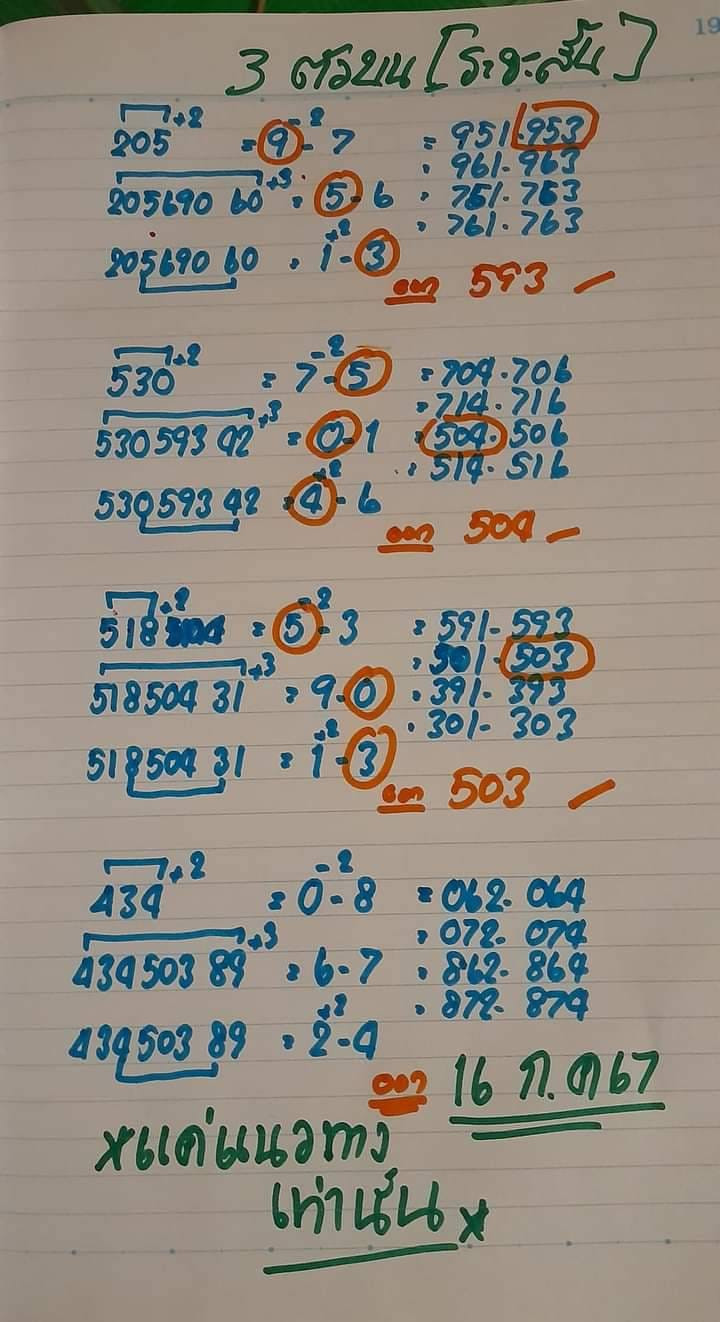 19
3 ตัวบน [ระยะสั้น]
205 +2 = 9 -2 7 = 951. 953
= 961- 963
205690 60 +3 = 5-6 = 751. 753
= 761. 763
205690 60 = 1 +2 3
ออก 593
530 +2 = 7 -2 5 = 704. 706
= 714. 716
530593 42 +3 = 0-1 = 504. 506
= 514. 516
530593 42 = 4 +2 6
ออก 504
518504 +2 = 5 -2 3 = 591- 593
= 501- 503
518504 31 +3 = 9-0 = 391- 393
= 301- 303
518504 31 = 1 +2 3
ออก 503
434 +2 = 0 -2 8 = 062- 064
= 072- 074
434503 89 +3 = 6-7 = 862- 864
= 872- 874
434503 89 = 2 +2 4
ออก 16 ก.ค 67
*แค่แนวทาง
เท่านั้น*